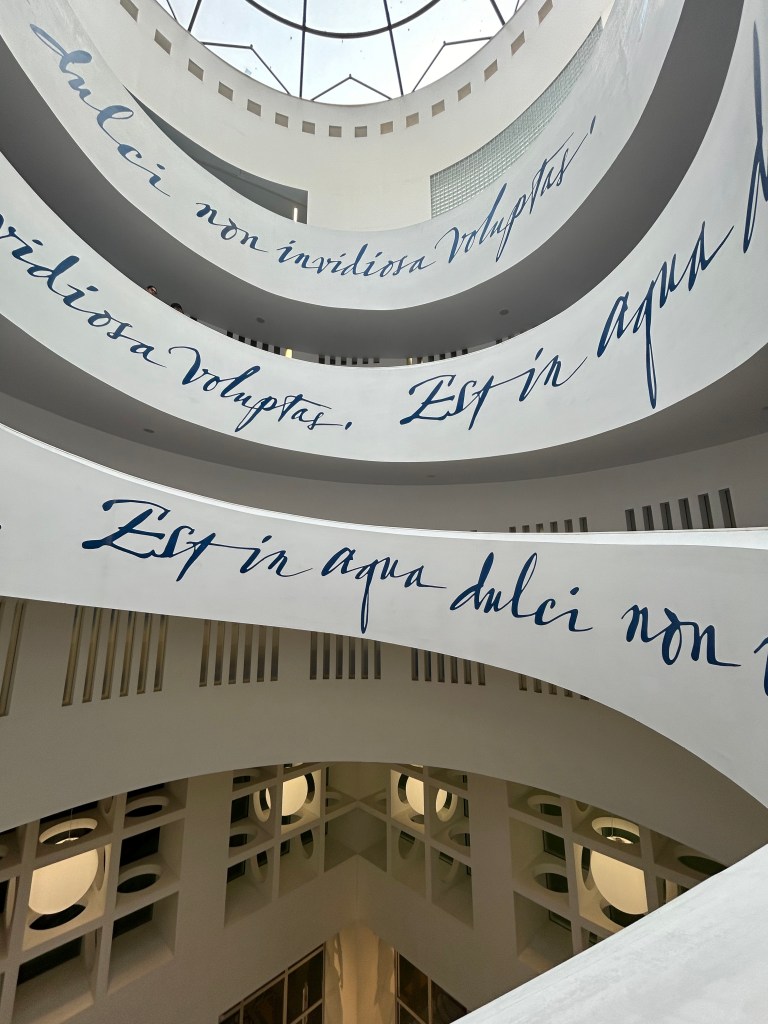 dulci non invidiosa voluptas.
vidiosa voluptas. Est in aqua
Est in aqua dulci non